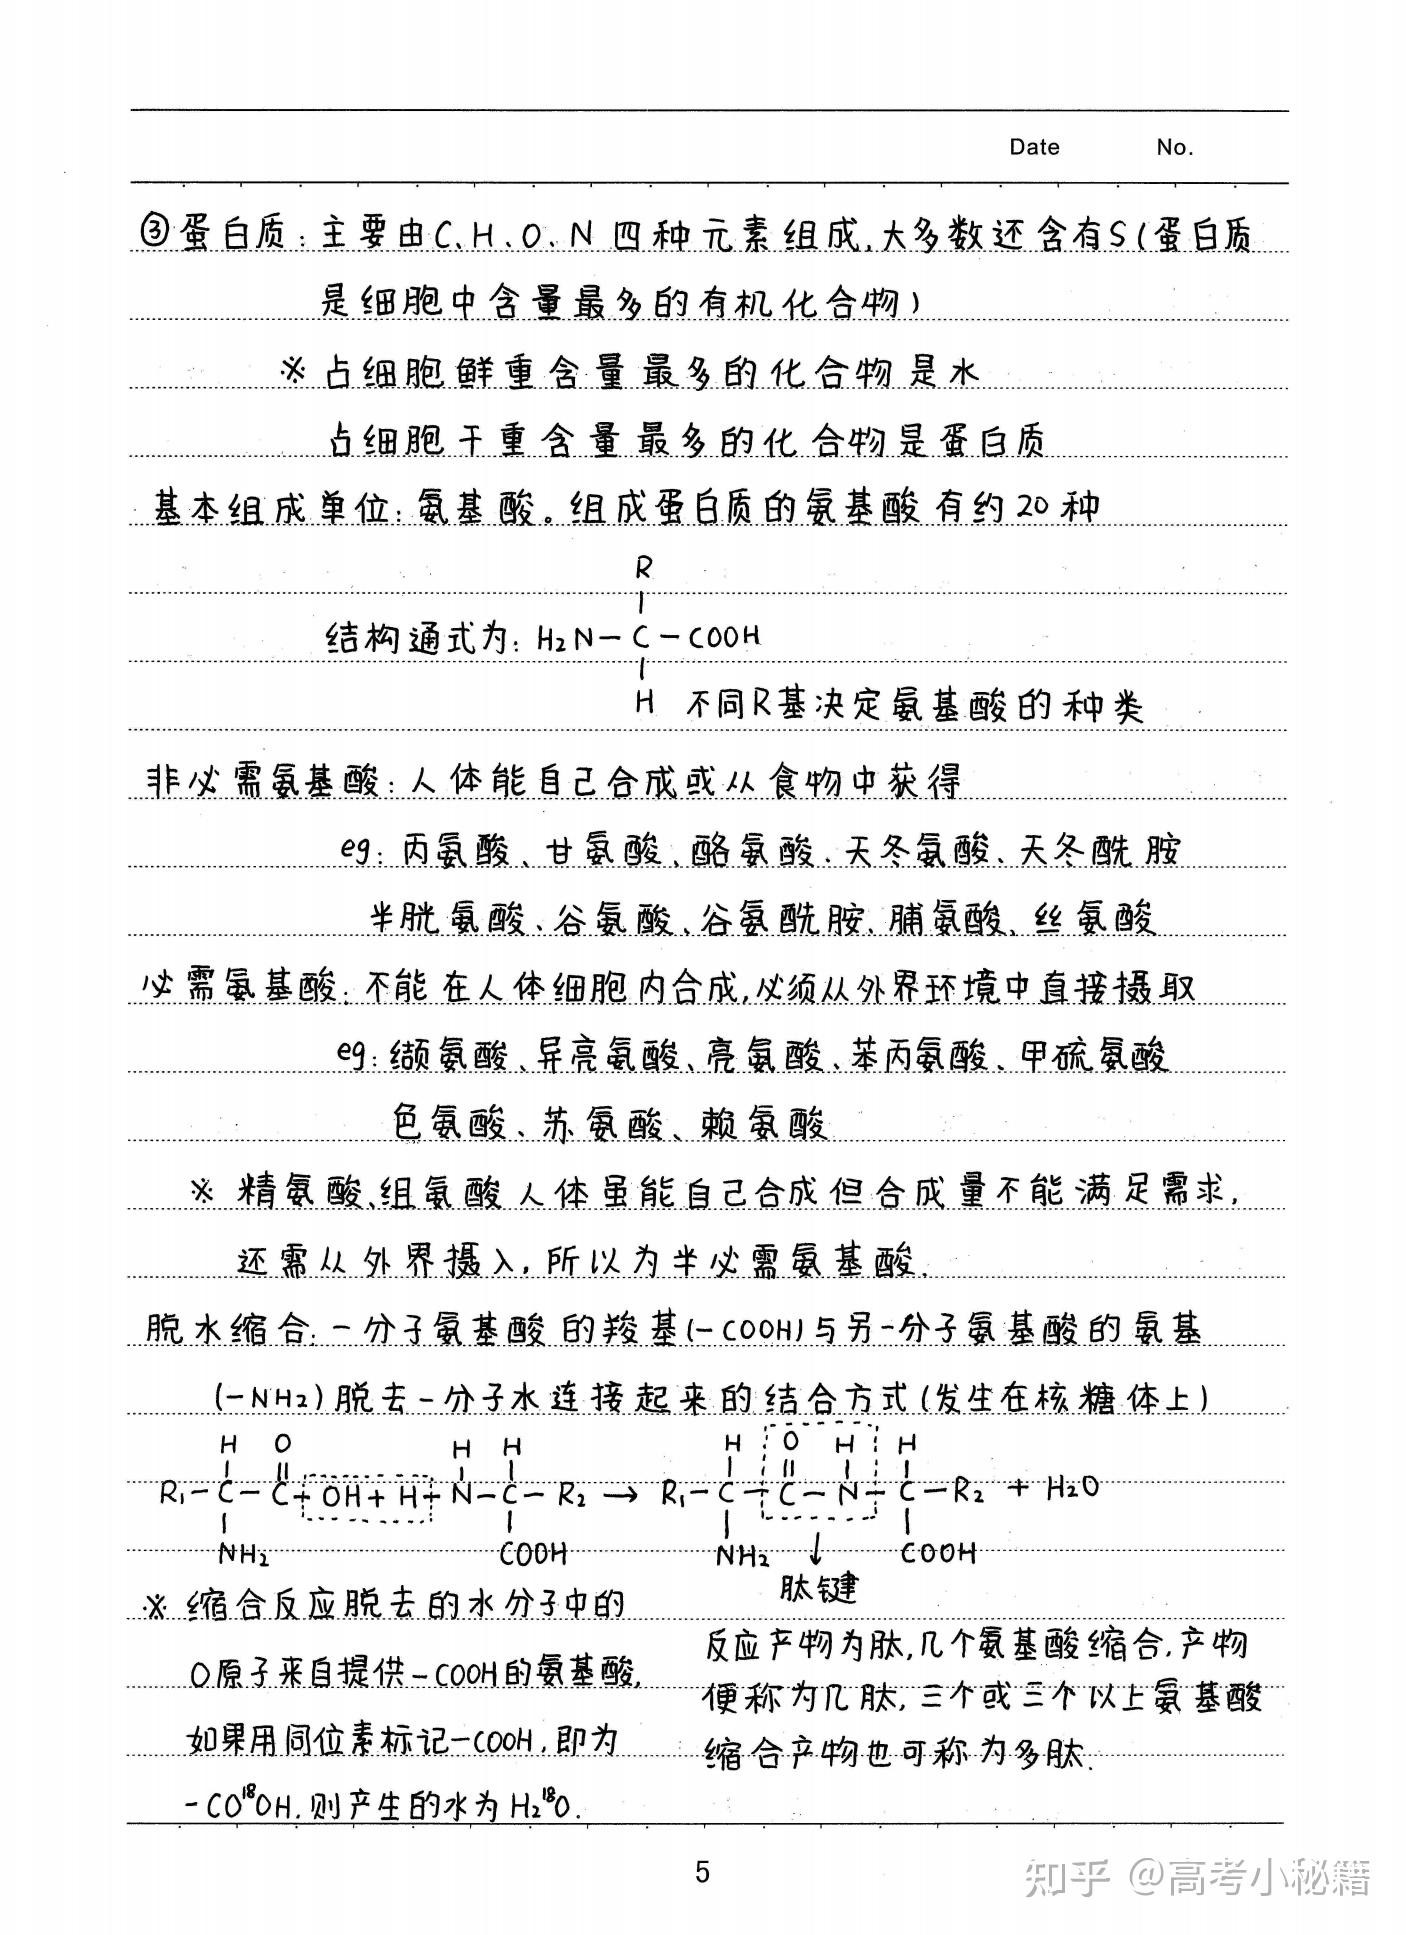 Date No.
③蛋白质：主要由C、H、O、N四种元素组成,大多数还含有S(蛋白质
是细胞中含量最多的有机化合物)
※ 占细胞鲜重含量最多的化合物是水
占细胞干重含量最多的化合物是蛋白质
基本组成单位：氨基酸。组成蛋白质的氨基酸有约20种
R
|
结构通式为：H₂N－C－COOH
|
H 不同R基决定氨基酸的种类
非必需氨基酸：人体能自己合成或从食物中获得
eg：丙氨酸、甘氨酸、酪氨酸、天冬氨酸、天冬酰胺
半胱氨酸、谷氨酸、谷氨酰胺、脯氨酸、丝氨酸
必需氨基酸：不能在人体细胞内合成,必须从外界环境中直接摄取
eg：缬氨酸、异亮氨酸、亮氨酸、苯丙氨酸、甲硫氨酸
色氨酸、苏氨酸、赖氨酸
※ 精氨酸、组氨酸人体虽能自己合成但合成量不能满足需求,
还需从外界摄入,所以为半必需氨基酸.
脱水缩合：一分子氨基酸的羧基(－COOH)与另一分子氨基酸的氨基
(－NH₂)脱去一分子水连接起来的结合方式(发生在核糖体上)
H O H H H O H H
| || | | | || | |
R₁－C－C－OH＋H－N－C－R₂ → R₁－C－C－N－C－R₂ ＋ H₂O
| | | ↓ |
NH₂ COOH NH₂ COOH
肽键
※ 缩合反应脱去的水分子中的
O原子来自提供－COOH的氨基酸,
如果用同位素标记－COOH,即为
－CO¹⁸OH,则产生的水为H₂¹⁸O.
反应产物为肽,几个氨基酸缩合,产物
便称为几肽,三个或三个以上氨基酸
缩合产物也可称为多肽.
5
知乎 @高考小秘籍